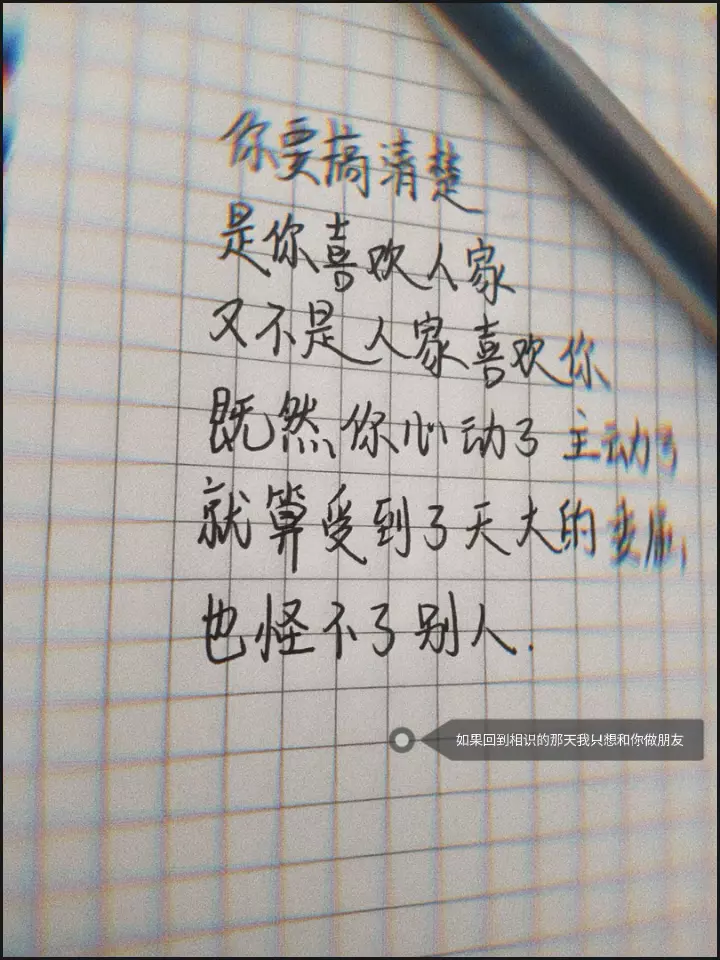 你要搞清楚
是你喜欢人家
又不是人家喜欢你
既然你心动了 主动了
就算受到了天大的委屈,
也怪不了别人.
如果回到相识的那天我只想和你做朋友